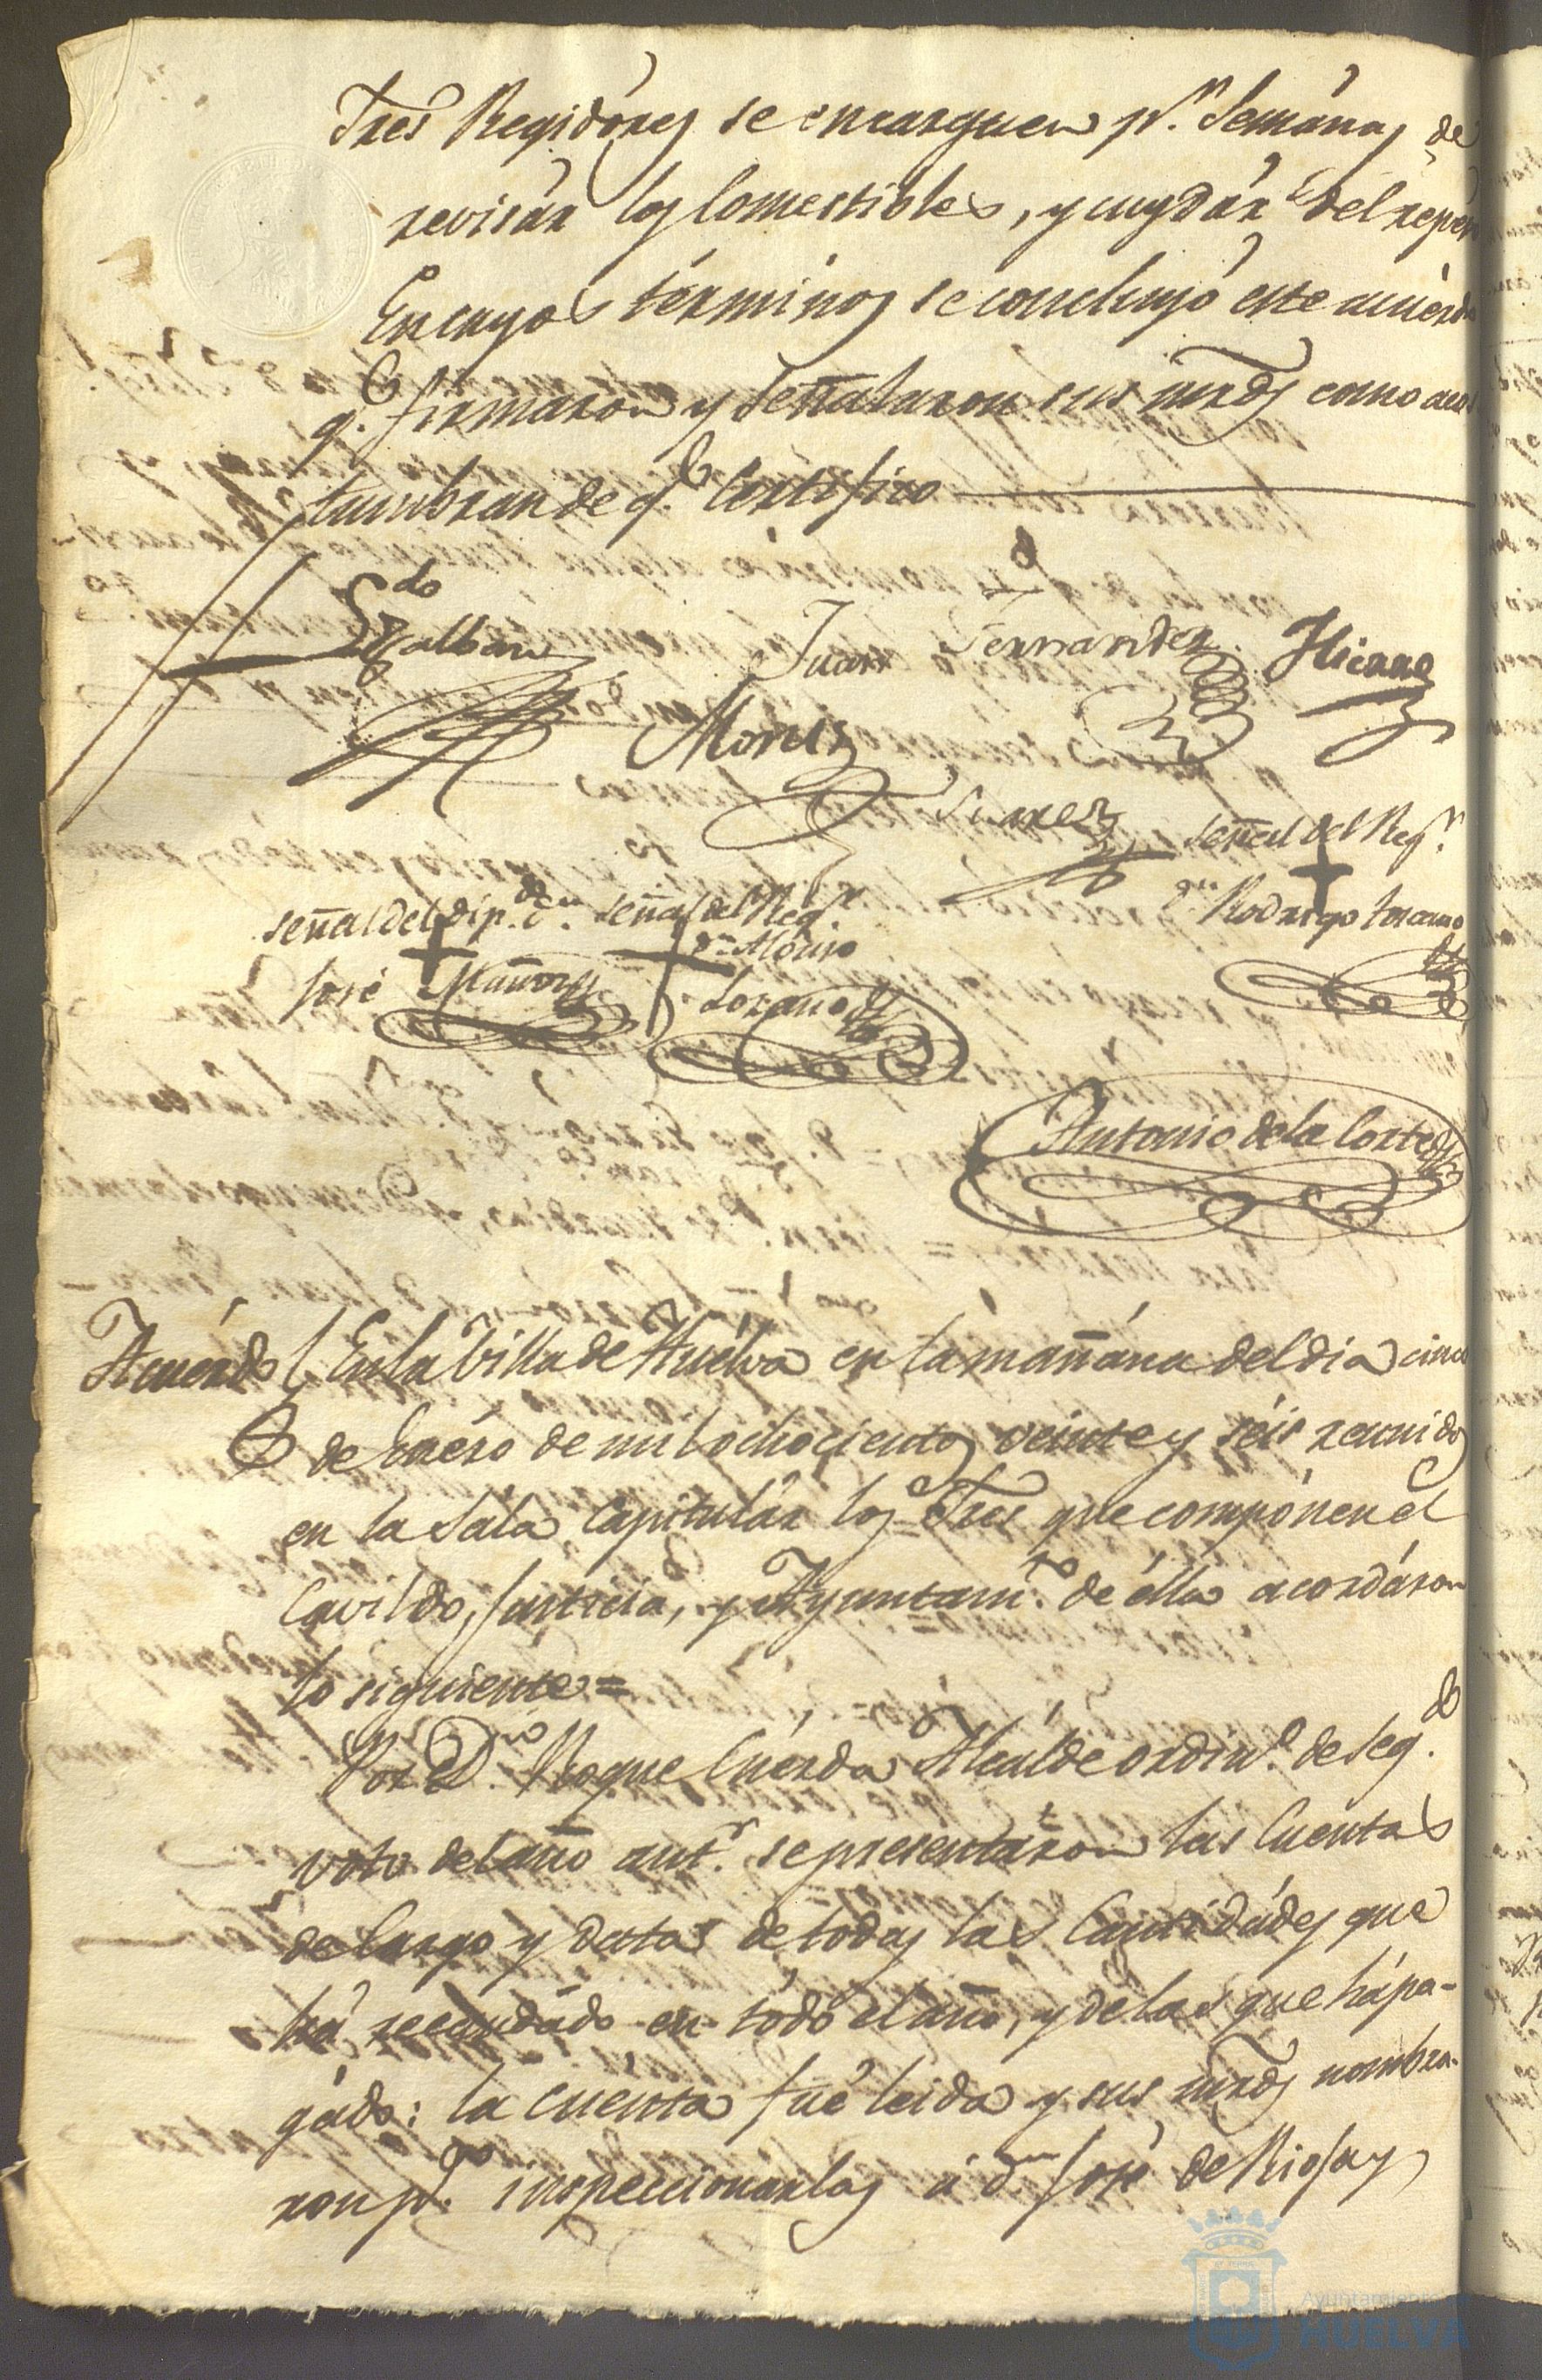 Tres Regidores se encarguen p.r Semanas de
revisar los Comestibles, y cuydar del repeso
En cuyos terminos se concluyó este acuerdo
q.e firmaron y señalaron sus mrds como acos
tumbran de q.e Certifico
Ldo
Galban
Juan Fernandez
Moren
Suarez
señal del Reg.r
dn Rodrigo Toscano
señal del dip.do dn
José Muñoz
señal del Reg.r
dn Alonso
Lozano
Antonio de la Corte
Acuerdo
En la Villa de Huelva en la mañana del dia cinco
de Enero de mil ochocientos veinte y seis reunidos
en la Sala Capitular los Sres que componen el
Cavildo, Justicia, y Ayuntam.to de ella acordaron
lo siguiente =
Por Dn Roque Cuerda Alcalde ordin.o de Seg.do
voto del año ant.r se presentaron las Cuentas
de Cargo y data de todas las Cantidades que
há recaudado en todo el año, y de las que há pa-
gado: la cuenta fué leida y sus mrds nombra-
ron p.a inspeccionarlas á dn José de Rioja y
Ayuntamiento
HUELVA